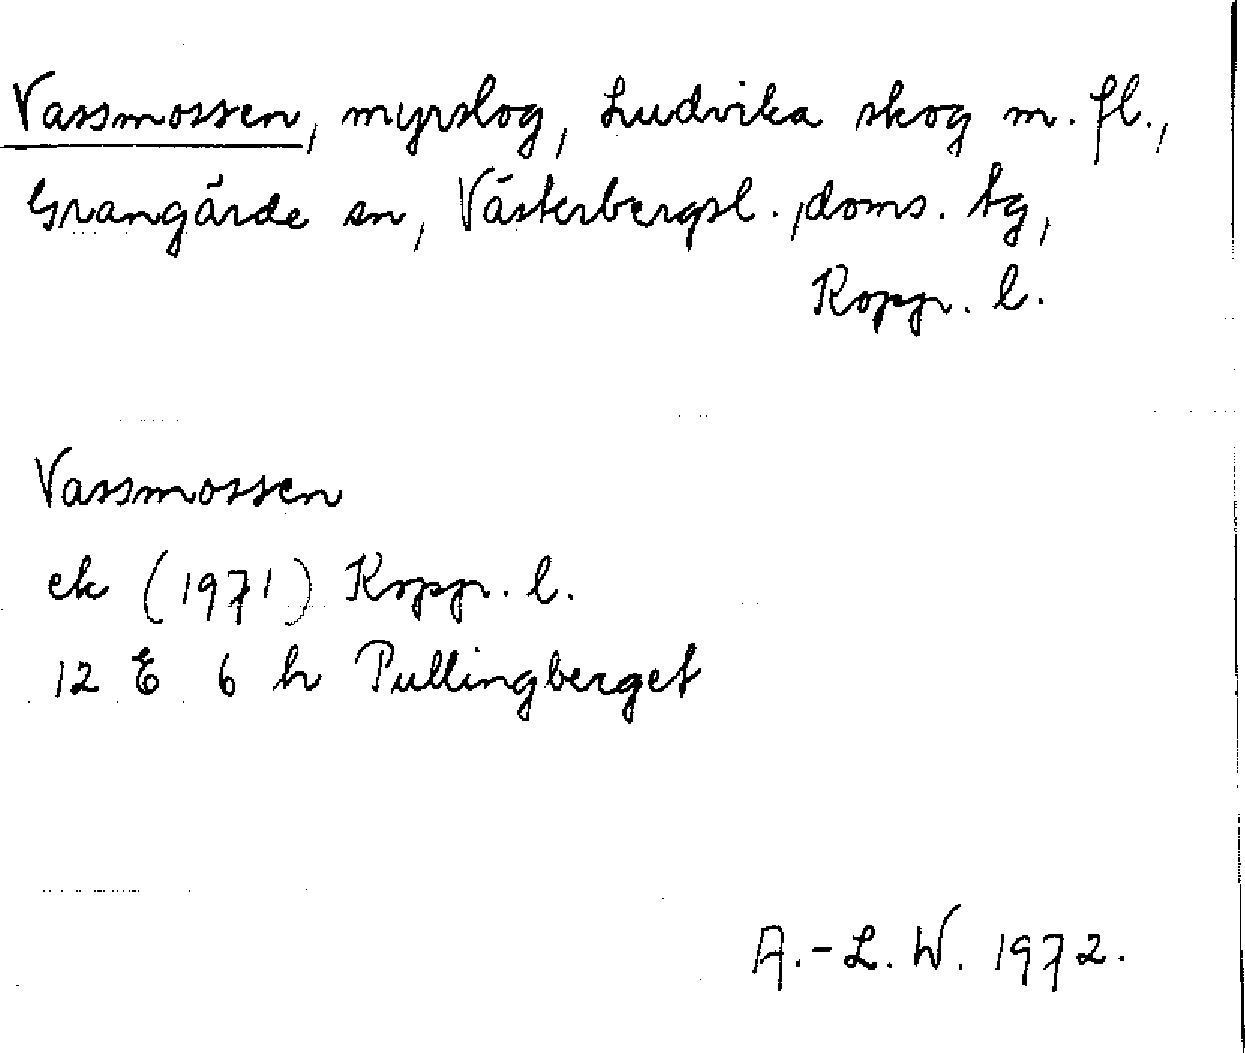 Vassmossen, myrslog, Ludvika skog m. fl.,
Grangärde sn, Västerbergsl., doms. tg,
Kopgr. l.
Vassmossen
ek (1971) Kopgr. l.
12 E 6 h Pullingberget
A.-L. W. 1972.